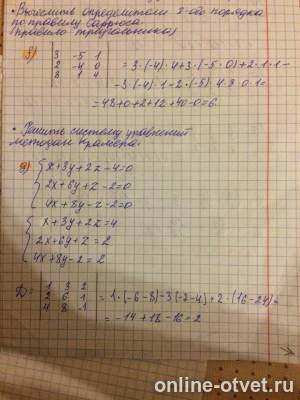 • Вычислить определители 2-ого порядка
по правилу Саррюса
(правило треугольника)
8) | 3 -5 1
2 -4 0
8 1 4 | = 3·(-4)·4+3·(-5·0)+2·1·1-
-3·(-4)·1-2·(-5)·4·8·0·1=
=48+0+2+12+40-0=6.
• Решить систему уравнений
методом Крамера.
x+3y+2z-4=0
2x+6y+z-2=0
4x+8y-z-2=0
x+3y+2z=4
2x+6y+z=2
4x+8y-z=2
D= | 1 3 2
2 6 1
4 8 -1 | = 1·(-6-8)-3(-2-4)+2·(16-24)=
= -14+18-16=2
online-otvet.ru